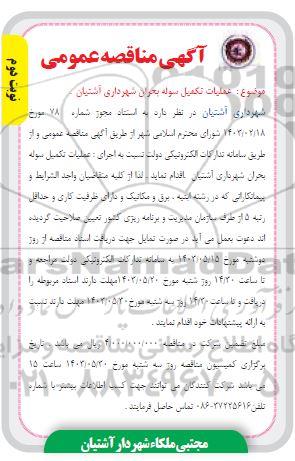 آگهی مناقصه عمومی
نوبت دوم
موضوع : عملیات تکمیل سوله بحران شهرداری آشتیان .
شهرداری آشتیان در نظر دارد به استناد مجوز شماره ۷۸ مورخ
۱۴۰۳/۰۲/۱۸ شورای محترم اسلامی شهر از طریق آگهی مناقصه عمومی و از
طریق سامانه تدارکات الکترونیکی دولت نسبت به اجرای : عملیات تکمیل سوله
بحران شهرداری آشتیان اقدام نماید . لذا از کلیه متقاضیان واجد الشرایط و
پیمانکارانی که در رشته ابنیه ، برق و مکانیک و دارای ظرفیت کاری و حداقل
رتبه ۵ از طرف سازمان مدیریت و برنامه ریزی کشور تعیین صلاحیت گردیده
اند دعوت بعمل می آید در صورت تمایل جهت دریافت اسناد مناقصه از روز
دوشنبه مورخ ۱۴۰۳/۰۵/۱۵ به سامانه تدارکات الکترونیکی دولت مراجعه و
تا ساعت ۱۴/۳۰ روز شنبه مورخ ۱۴۰۳/۰۵/۲۰مهلت دارند اسناد مربوطه را
دریافت و تا ساعت ۱۴/۳۰ روز سه شنبه مورخ۱۴۰۳/۰۵/۳۰ مهلت دارند نسبت
به ارائه پیشنهادات خود اقدام نمایند .
مبلغ تضمین شرکت در مناقصه ریال می باشد . تاریخ
برگزاری کمیسیون مناقصه روز سه شنبه مورخ ۱۴۰۳/۰۵/۳۰ ساعت ۱۵
می باشد شرکت کنندگان می توانند جهت کسب اطلاعات بیشتر با شماره
تلفن۳۷۲۲۵۶۱۶-۰۸۶ تماس حاصل فرمایند .
مجتبی ملکاء شهردار آشتیان